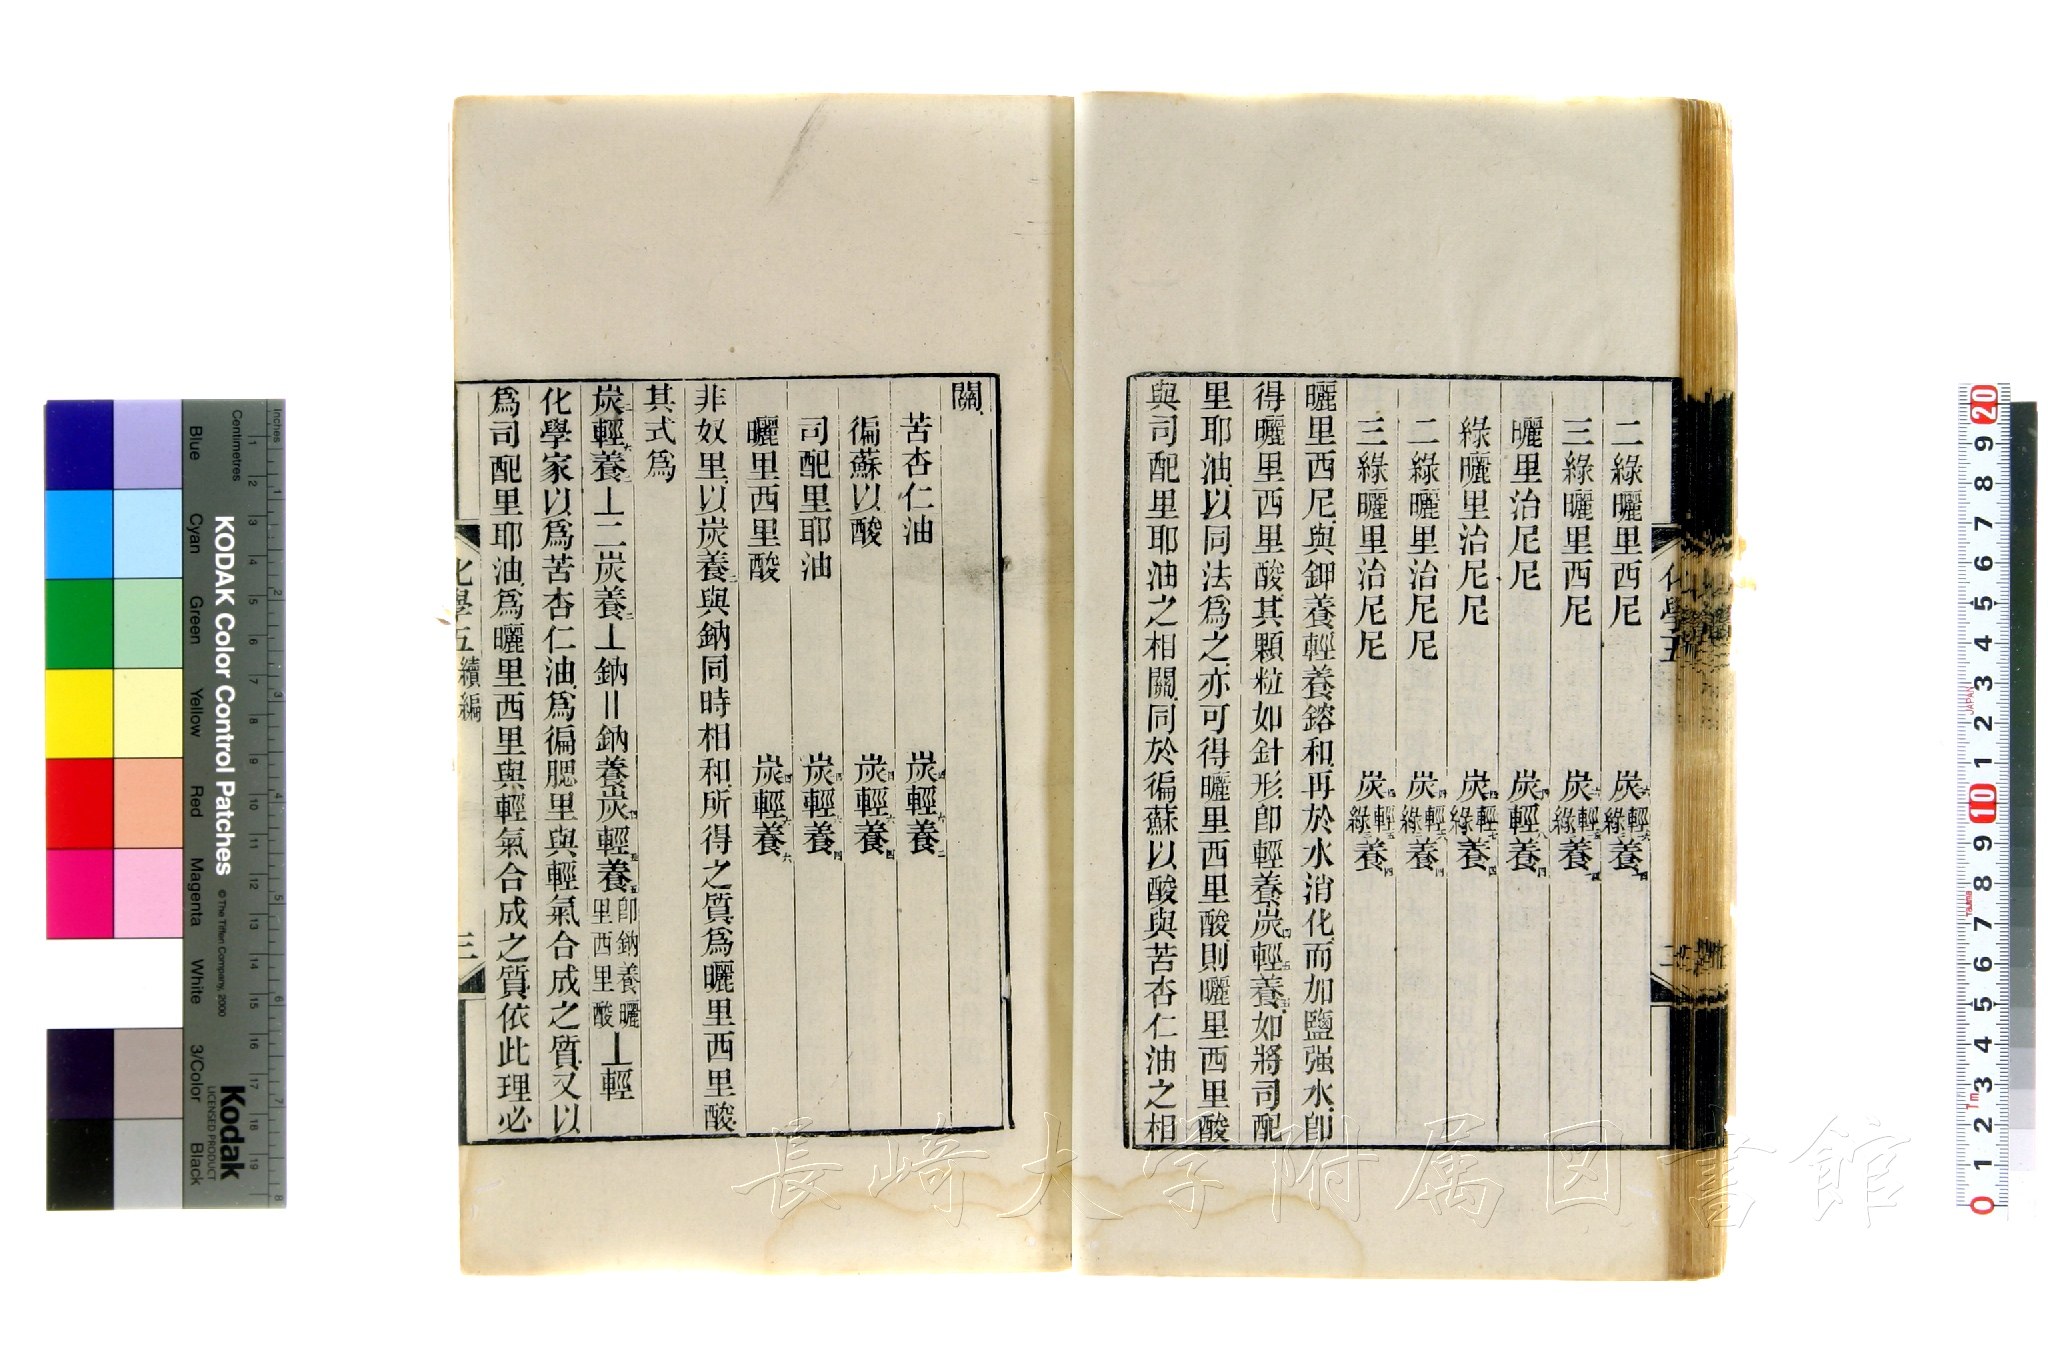 二綠曬里西尼 炭輕綠養
三綠曬里西尼 炭輕綠養
曬里治尼尼 炭輕養
綠曬里治尼尼 炭輕綠養
二綠曬里治尼尼 炭輕綠養
三綠曬里治尼尼 炭輕綠養
曬里西尼與鉀養輕養鎔和再於水消化而加鹽强水卽
得曬里西里酸其顆粒如針形卽輕養炭輕養如將司配
里耶油以同法爲之亦可得曬里西里酸則曬里西里酸
與司配里耶油之相關同於徧蘇以酸與苦杏仁油之相
關
苦杏仁油 炭十四輕六養二
徧蘇以酸 炭十四輕六養四
司配里耶油 炭十四輕六養四
曬里西里酸 炭十四輕六養六
非奴里以炭養二與鈉同時相和所得之質爲曬里西里酸
其式爲
炭輕養⊥二炭養二⊥鈉＝鈉養炭輕養卽鈉養曬里西里酸⊥輕
化學家以爲苦杏仁油爲徧腮里與輕氣合成之質又以
爲司配里耶油爲曬里西里與輕氣合成之質依此理必
化學五 續編
三
化學五
KODAK Color Control Patches
© The Tiffen Company, 2000
Kodak
LICENSED PRODUCT
Inches
Centimetres
Blue
Cyan
Green
Yellow
Red
Magenta
White
3/Color
Black
JAPAN
長崎大学附属図書館